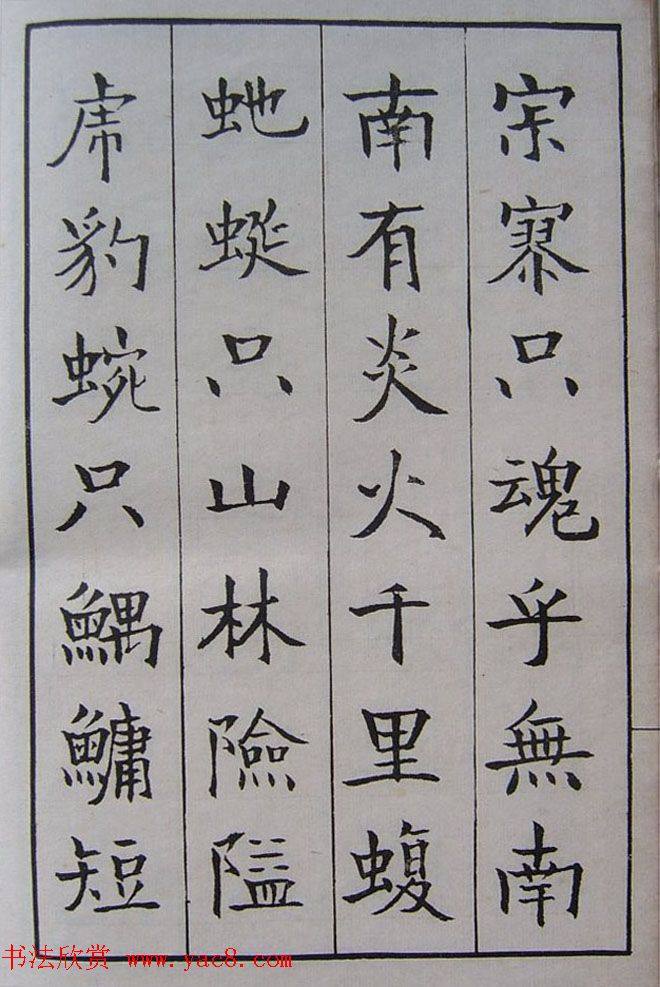 宗寥只魂乎無南
南有炎火千里蝮
虵蜒只山林險隘
虎豹蜿只鰅鱅短
书法欣赏 www.yac8.com